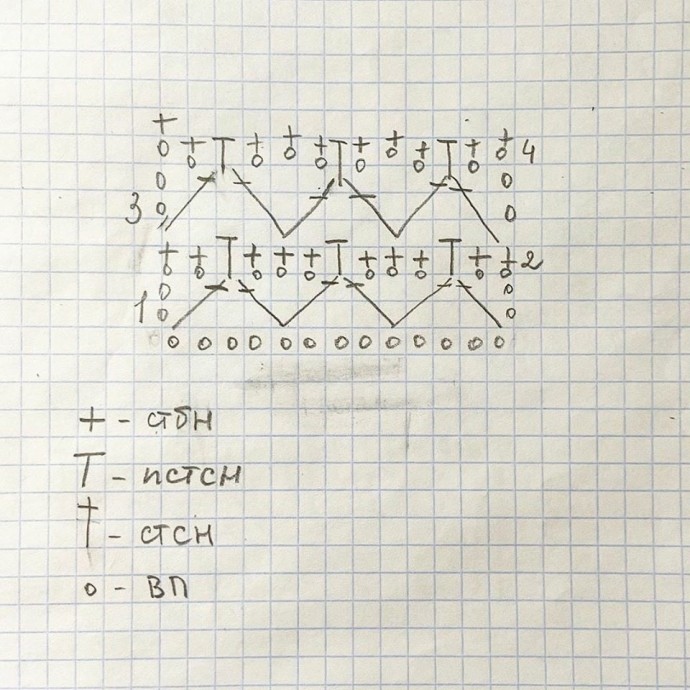 4
3
2
1
+ - стбн
T - пстсн
† - стсн
o - вп